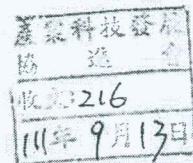 產業科技發展
協進會
收文216
111年9月13日